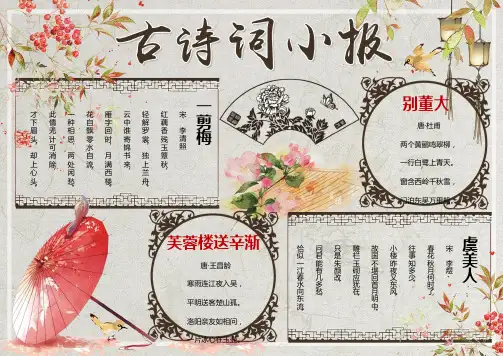 古诗词小报
一剪梅
宋 李清照
红藕香残玉簟秋。
轻解罗裳,独上兰舟。
云中谁寄锦书来,
雁字回时,月满西楼。
花自飘零水自流,
一种相思,两处闲愁。
此情无计可消除,
才下眉头,却上心头。
别董大
唐·杜甫
两个黄鹂鸣翠柳,
一行白鹭上青天。
窗含西岭千秋雪,
泊东吴万里
芙蓉楼送辛渐
唐·王昌龄
寒雨连江夜入吴,
平明送客楚山孤。
洛阳亲友如相问,
片冰心在玉
虞美人
宋 李煜
春花秋月何时了,
往事知多少。
小楼昨夜又东风,
故国不堪回首月明中。
雕栏玉砌应犹在,
只是朱颜改
问君能有几多愁
恰似一江春水向东流